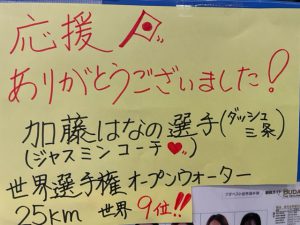 応援
ありがとうございました！
加藤はなの選手(ダッシュ三条)
(ジャスミンコーチ♥)
世界選手権オープンウォーター
25km 世界9位!!
BUDA